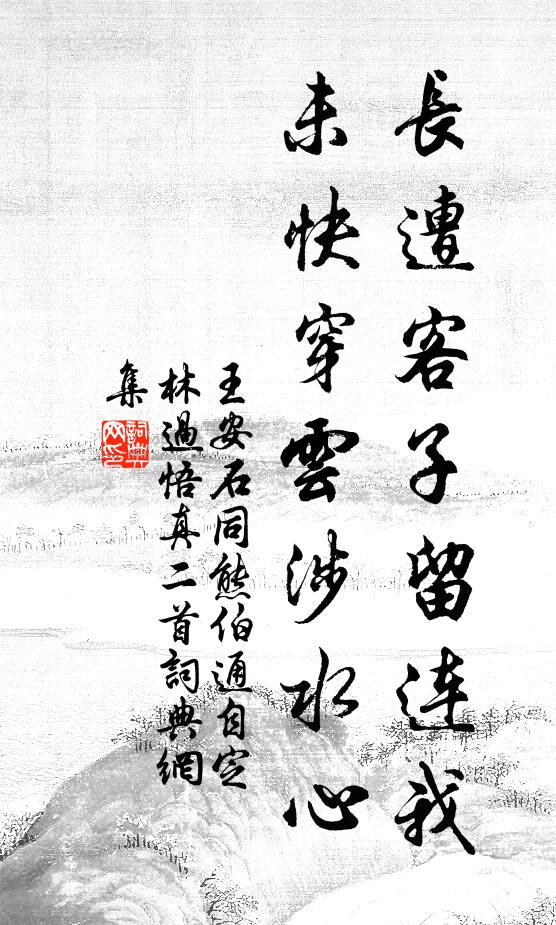 長遭客子留連我
未快穿雲涉水心
王安石同熊伯通自定
林過悟真二首詞典網
集
詞典網印